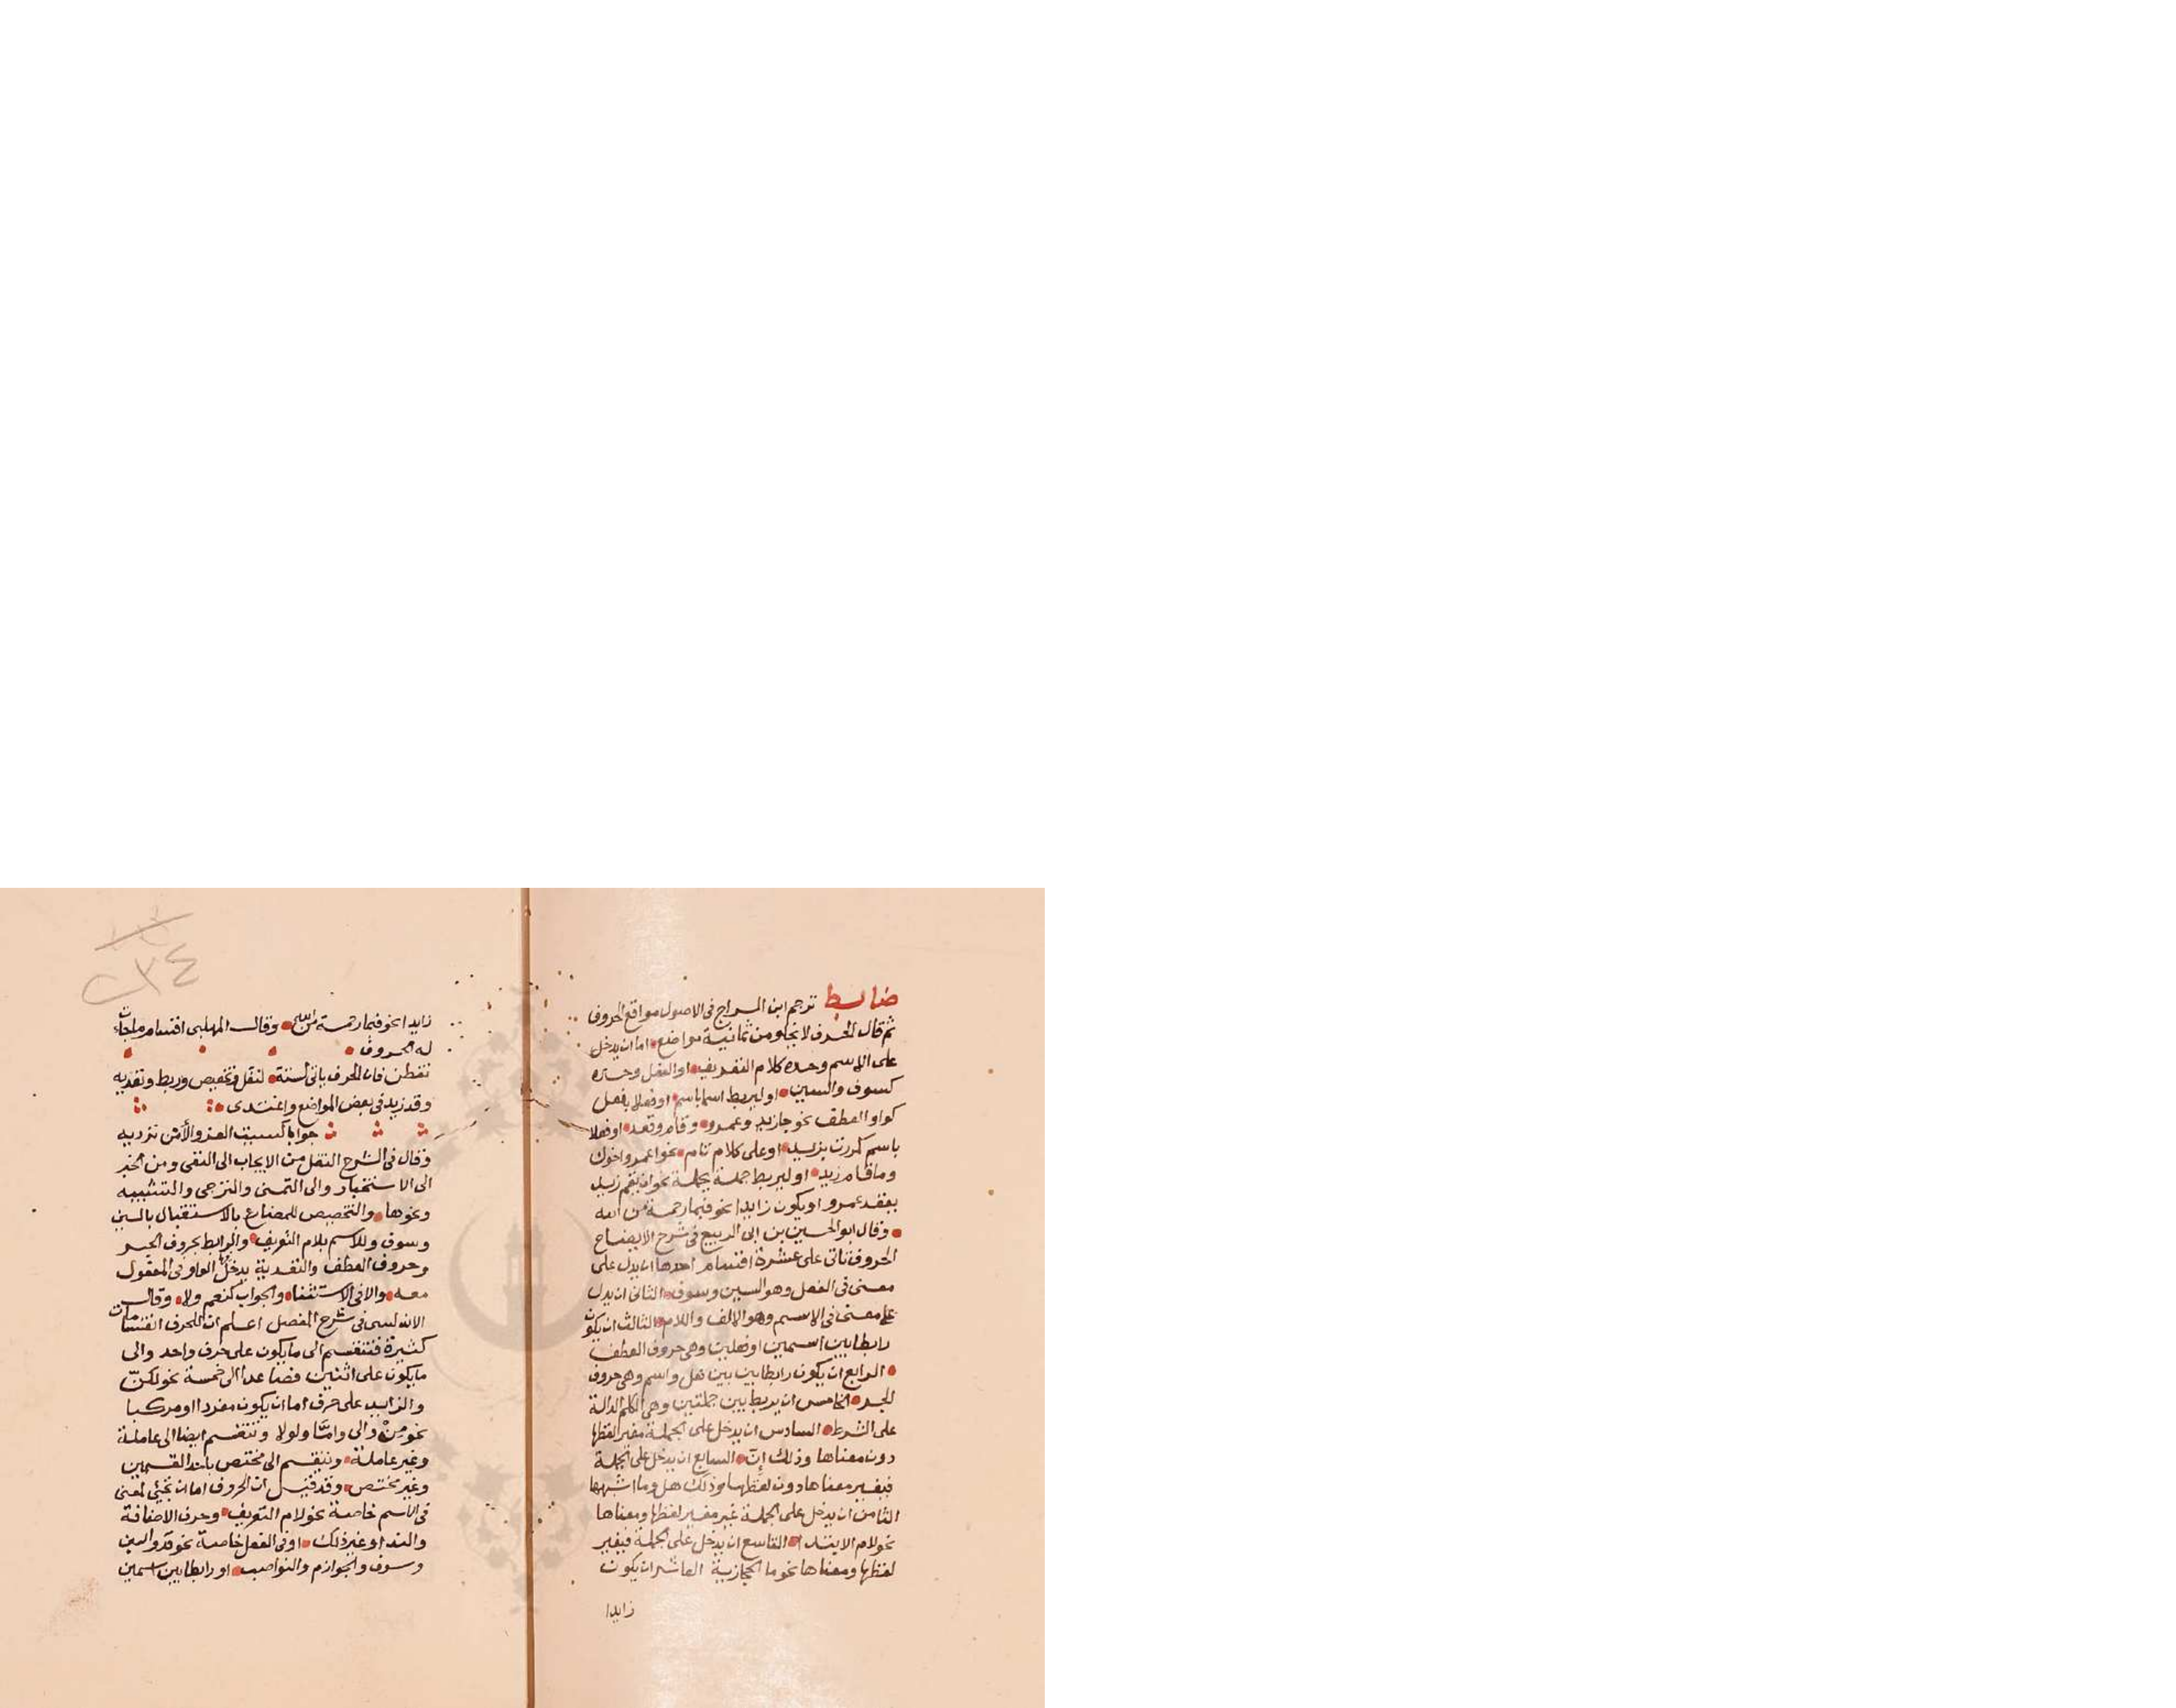 ضابط ترجم ابن السراج فى الاصول مواقع الحروف
ثم قال الحرف لا يخلو من ثمانية مواضع اما ان يدخل
على الاسم وحده كلام التعريف او الفعل وحده
كسوف والسين او ليربط اسما باسم او فعلا بفعل
كواو العطف نحو جا زيد وعمرو وقام وقعد او فعلا
باسم كمررت بزيد او على كلام تام نحو اعمرو اخوك
وما قام زيد او ليربط جملة بجملة نحو ان يقم زيد
يقعد عمرو او يكون زايدا نحو فبما رحمة من الله
وقال ابو الحسين بن ابى الربيع فى شرح الايضاح
الحروف تاتى على عشرة اقسام احدها ان يدل على
معنى فى الفعل وهو السين وسوف الثانى ان يدل
على معنى فى الاسم وهو الالف واللام الثالث ان يكون
رابطا بين اسمين او فعلين وهى حروف العطف
الرابع ان يكون رابطا بين فعل واسم وهى حروف
الجر الخامس ان يربط بين جملتين وهى الكلم الدالة
على الشرط السادس ان يدخل على الجملة مغير لفظها
دون معناها وذلك إنّ السابع ان يدخل على الجملة
فيغير معناها دون لفظها وذلك هل وما اشبهها
الثامن ان يدخل على الجملة غير مغير لفظها ومعناها
نحو لام الابتدا التاسع ان يدخل على الجملة فيغير
لفظها ومعناها نحو ما الحجازية العاشر ان يكون
زايدا
٢٣٤
زايدا نحو فبما رحمة من الله وقال المهلبى اقسام ما جاءت
له الحروف
تفطن فان الحرف ياتى لستة لنقل وتخصيص وربط وتعديه
وقد زيد فى بعض المواضع واغتدى
جوابا كسبت العز والأمن ترديه
وقال فى الشرح النقل من الايجاب الى النفى ومن الخبر
الى الاستخبار والى التمنى والترجى والتشبيه
ونحوها والتخصيص للمضارع بالاستقبال بالسين
وسوف وللاسم بلام التعريف والربط بحروف الجر
وحروف العطف والتعدية يدخل الواو فى المفعول
معه والا فى الاستثنا والجواب كنعم ولا وقال
الاندلسى فى شرح المفصل اعلم ان للحرف انقسامات
كثيرة فتنقسم الى ما يكون على حرف واحد والى
ما يكون على اثنين فصاعدا الى خمسة نحو لكنّ
والزايد على حرف اما ان يكون مفردا او مركبا
نحو من والى وامّا ولولا وتنقسم ايضا الى عاملة
وغير عاملة وتنقسم الى مختص باحد القسمين
وغير مختص وقد قيل ان الحروف اما ان تجئ لمعنى
فى الاسم خاصة نحو لام التعريف وحرف الاضافة
والندا وغير ذلك او فى الفعل خاصة نحو قد والسين
وسوف والجوازم والنواصب او رابطا بين اسمين